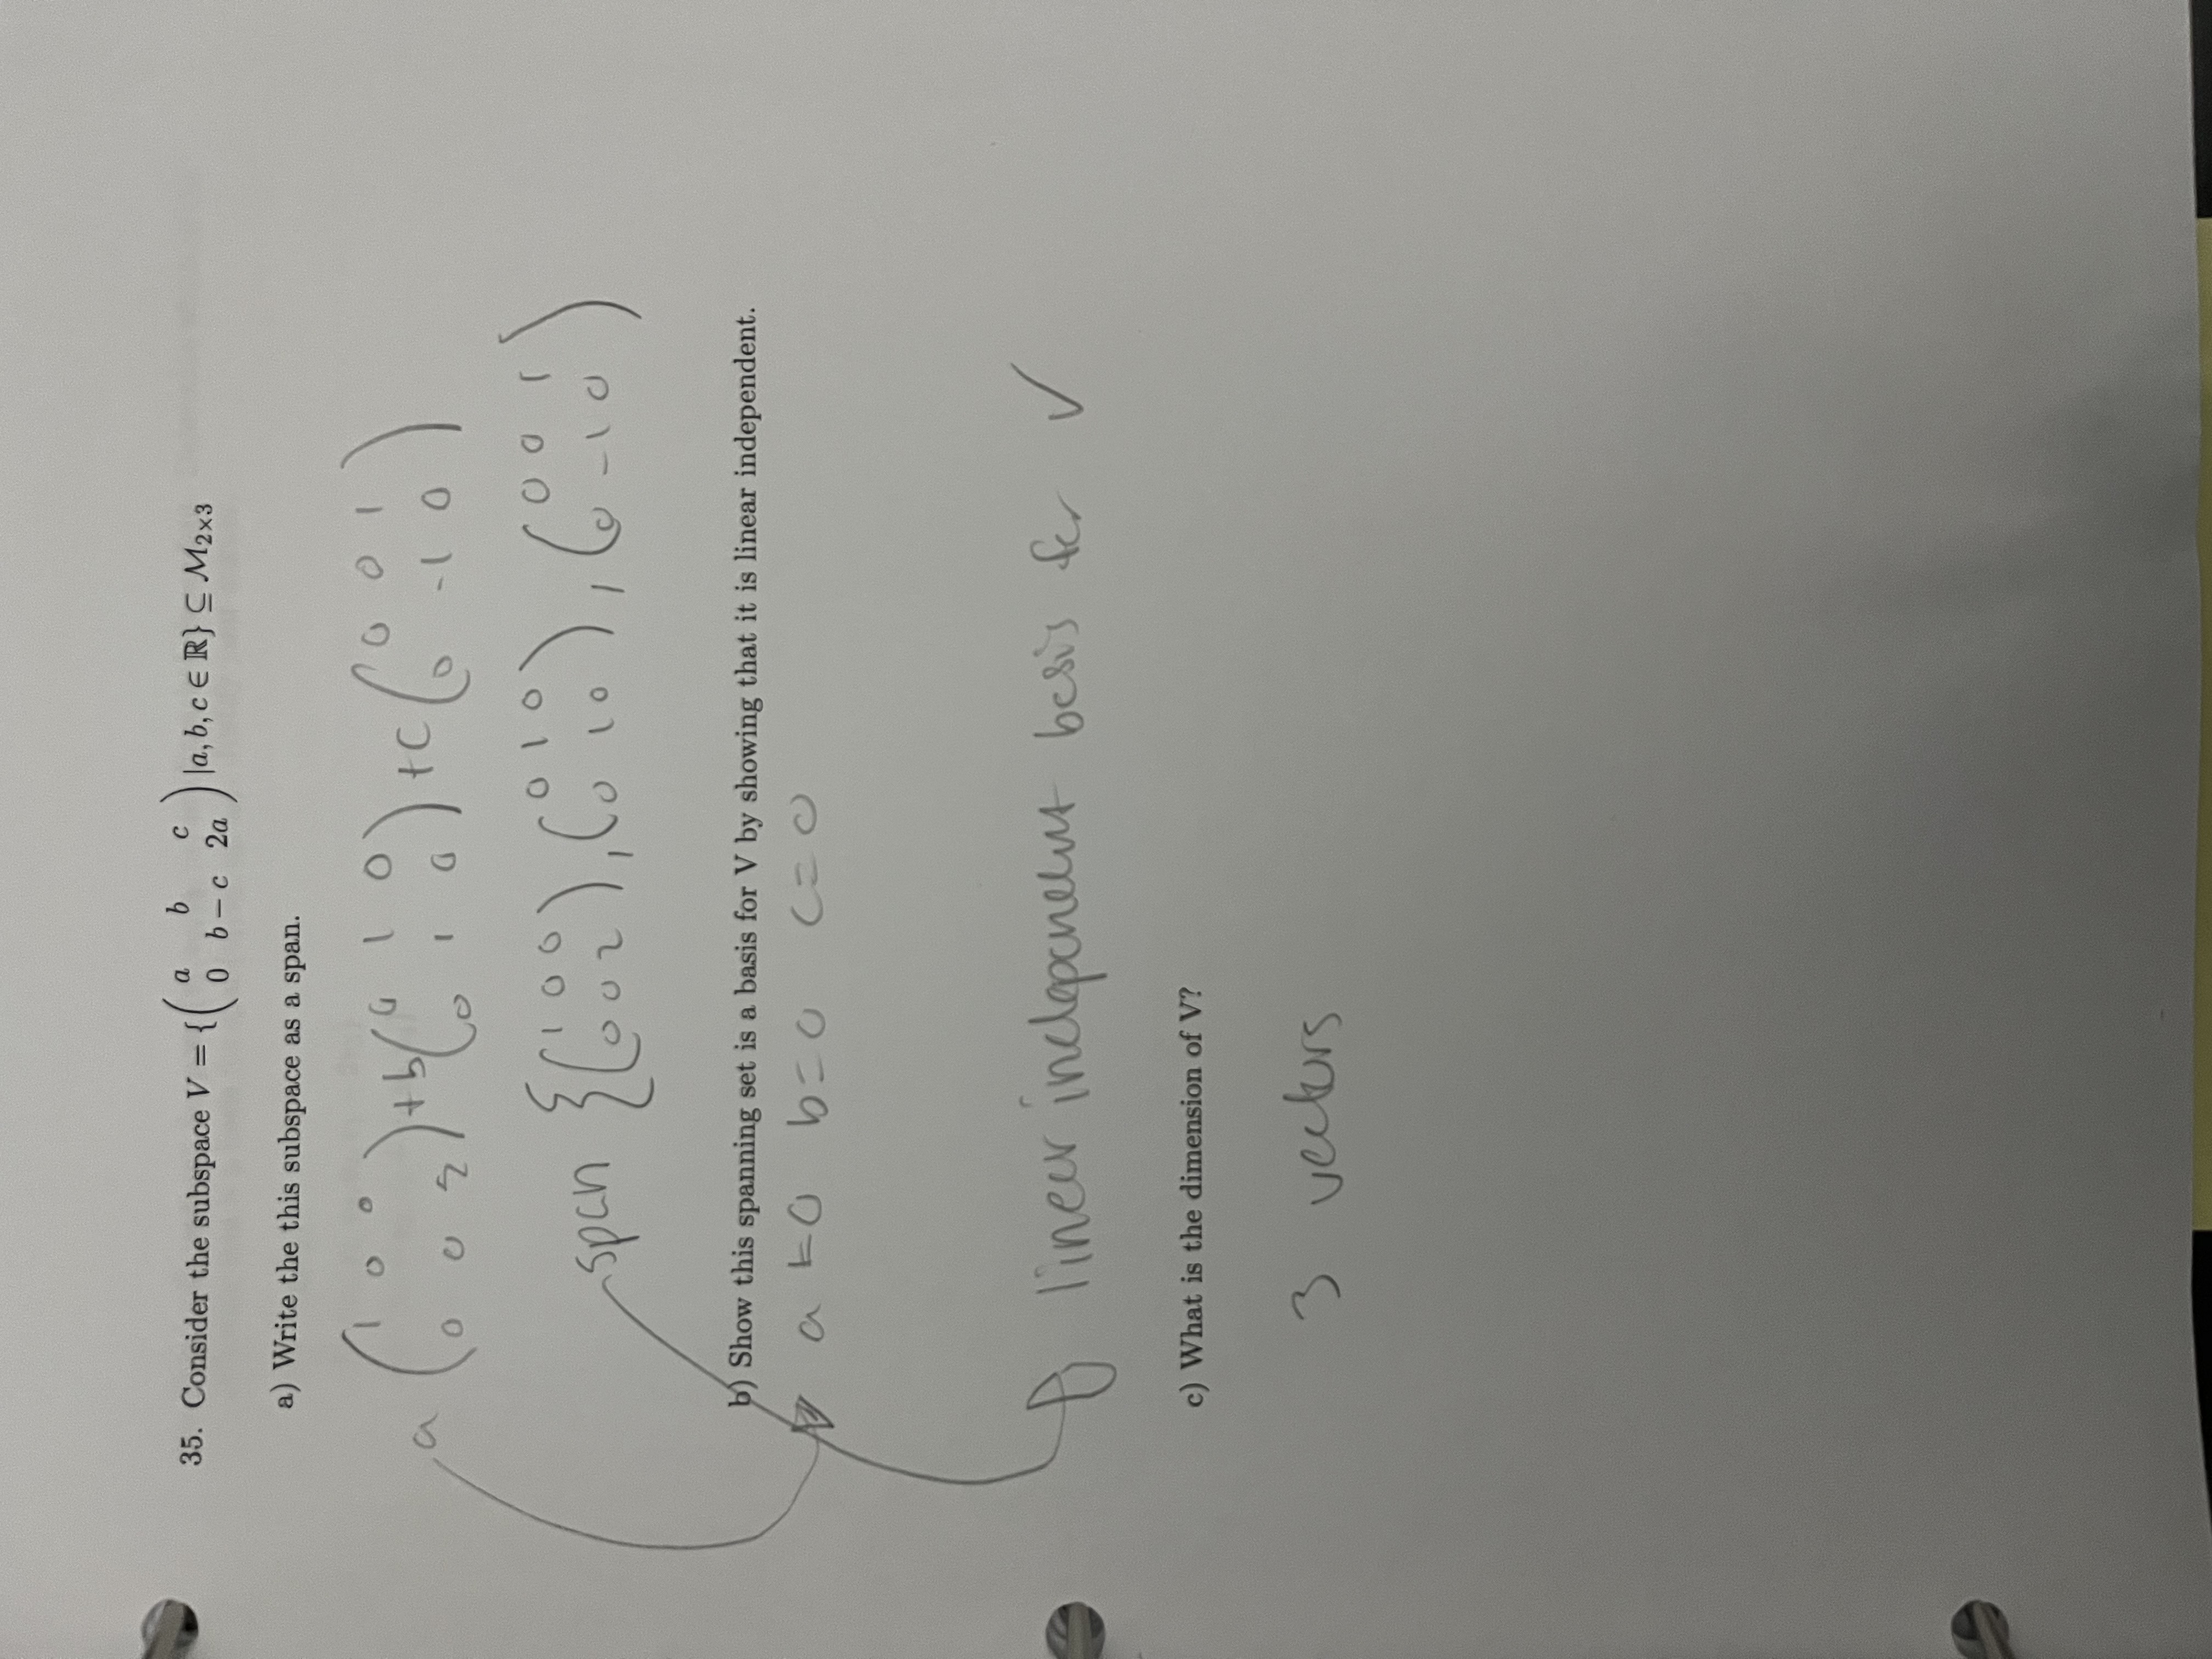 35. Consider the subspace V = {( a b c ; 0 b − c 2a ) |a, b, c ∈ ℝ} ⊆ M₂ₓ₃
a) Write the this subspace as a span.
a ( 1 0 0 ; 0 0 2 ) + b ( 0 1 0 ; 0 1 0 ) + c ( 0 0 1 ; 0 -1 0 )
span { ( 1 0 0 ; 0 0 2 ) , ( 0 1 0 ; 0 1 0 ) , ( 0 0 1 ; 0 -1 0 )
b) Show this spanning set is a basis for V by showing that it is linear independent.
a = 0 b = 0 c = 0
linear independent basis for V
c) What is the dimension of V?
3 vectors